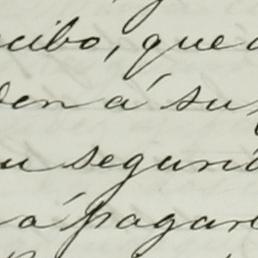 cibo, que
den á su
u segun
á pagar